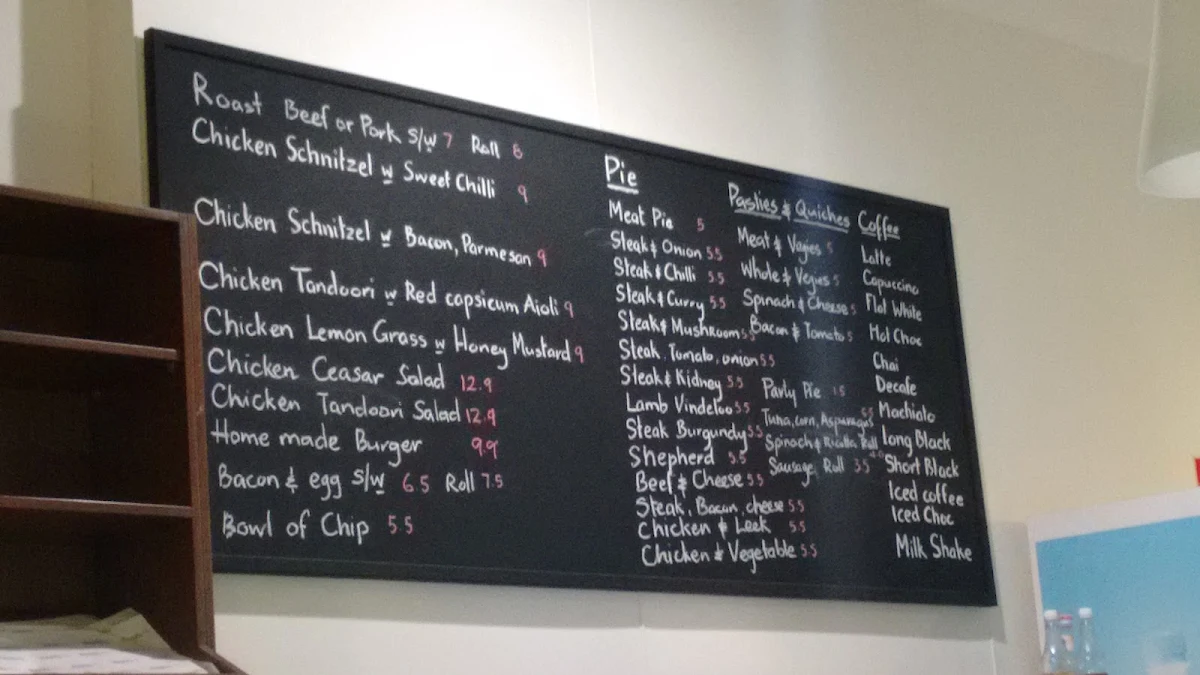 Roast Beef or Pork s/w 7 Roll 8
Chicken Schnitzel w Sweet Chilli 9
Chicken Schnitzel w Bacon, Parmesan 9
Chicken Tandoori w Red capsicum Aioli 9
Chicken Lemon Grass w Honey Mustard 9
Chicken Ceasar Salad 12.9
Chicken Tandoori Salad 12.9
Home made Burger 9.9
Bacon & egg s/w 6.5 Roll 7.5
Bowl of Chip 5.5
Pie
Meat Pie 5
Steak & Onion 5.5
Steak & Chilli 5.5
Steak & Curry 5.5
Steak & Mushroom 5.5
Steak, Tomato, onion 5.5
Steak & Kidney 5.5
Lamb Vindeloo 5.5
Steak Burgundy 5.5
Shepherd 5.5
Beef & Cheese 5.5
Steak, Bacon, cheese 5.5
Chicken & Leek 5.5
Chicken & Vegetable 5.5
Pasties & Quiches
Meat & Vegies 5
Whole & Vegies 5
Spinach & Cheese 5
Bacon & Tomato 5
Party Pie 1.5
Tuna, corn, Asparagus 5.5
Spinach & Ricotta Roll 4.0
Sausage Roll 3.5
Coffee
Latte
Capuccino
Flat White
Hot Choc
Chai
Decafe
Machiato
Long Black
Short Black
Iced coffee
Iced Choc
Milk Shake